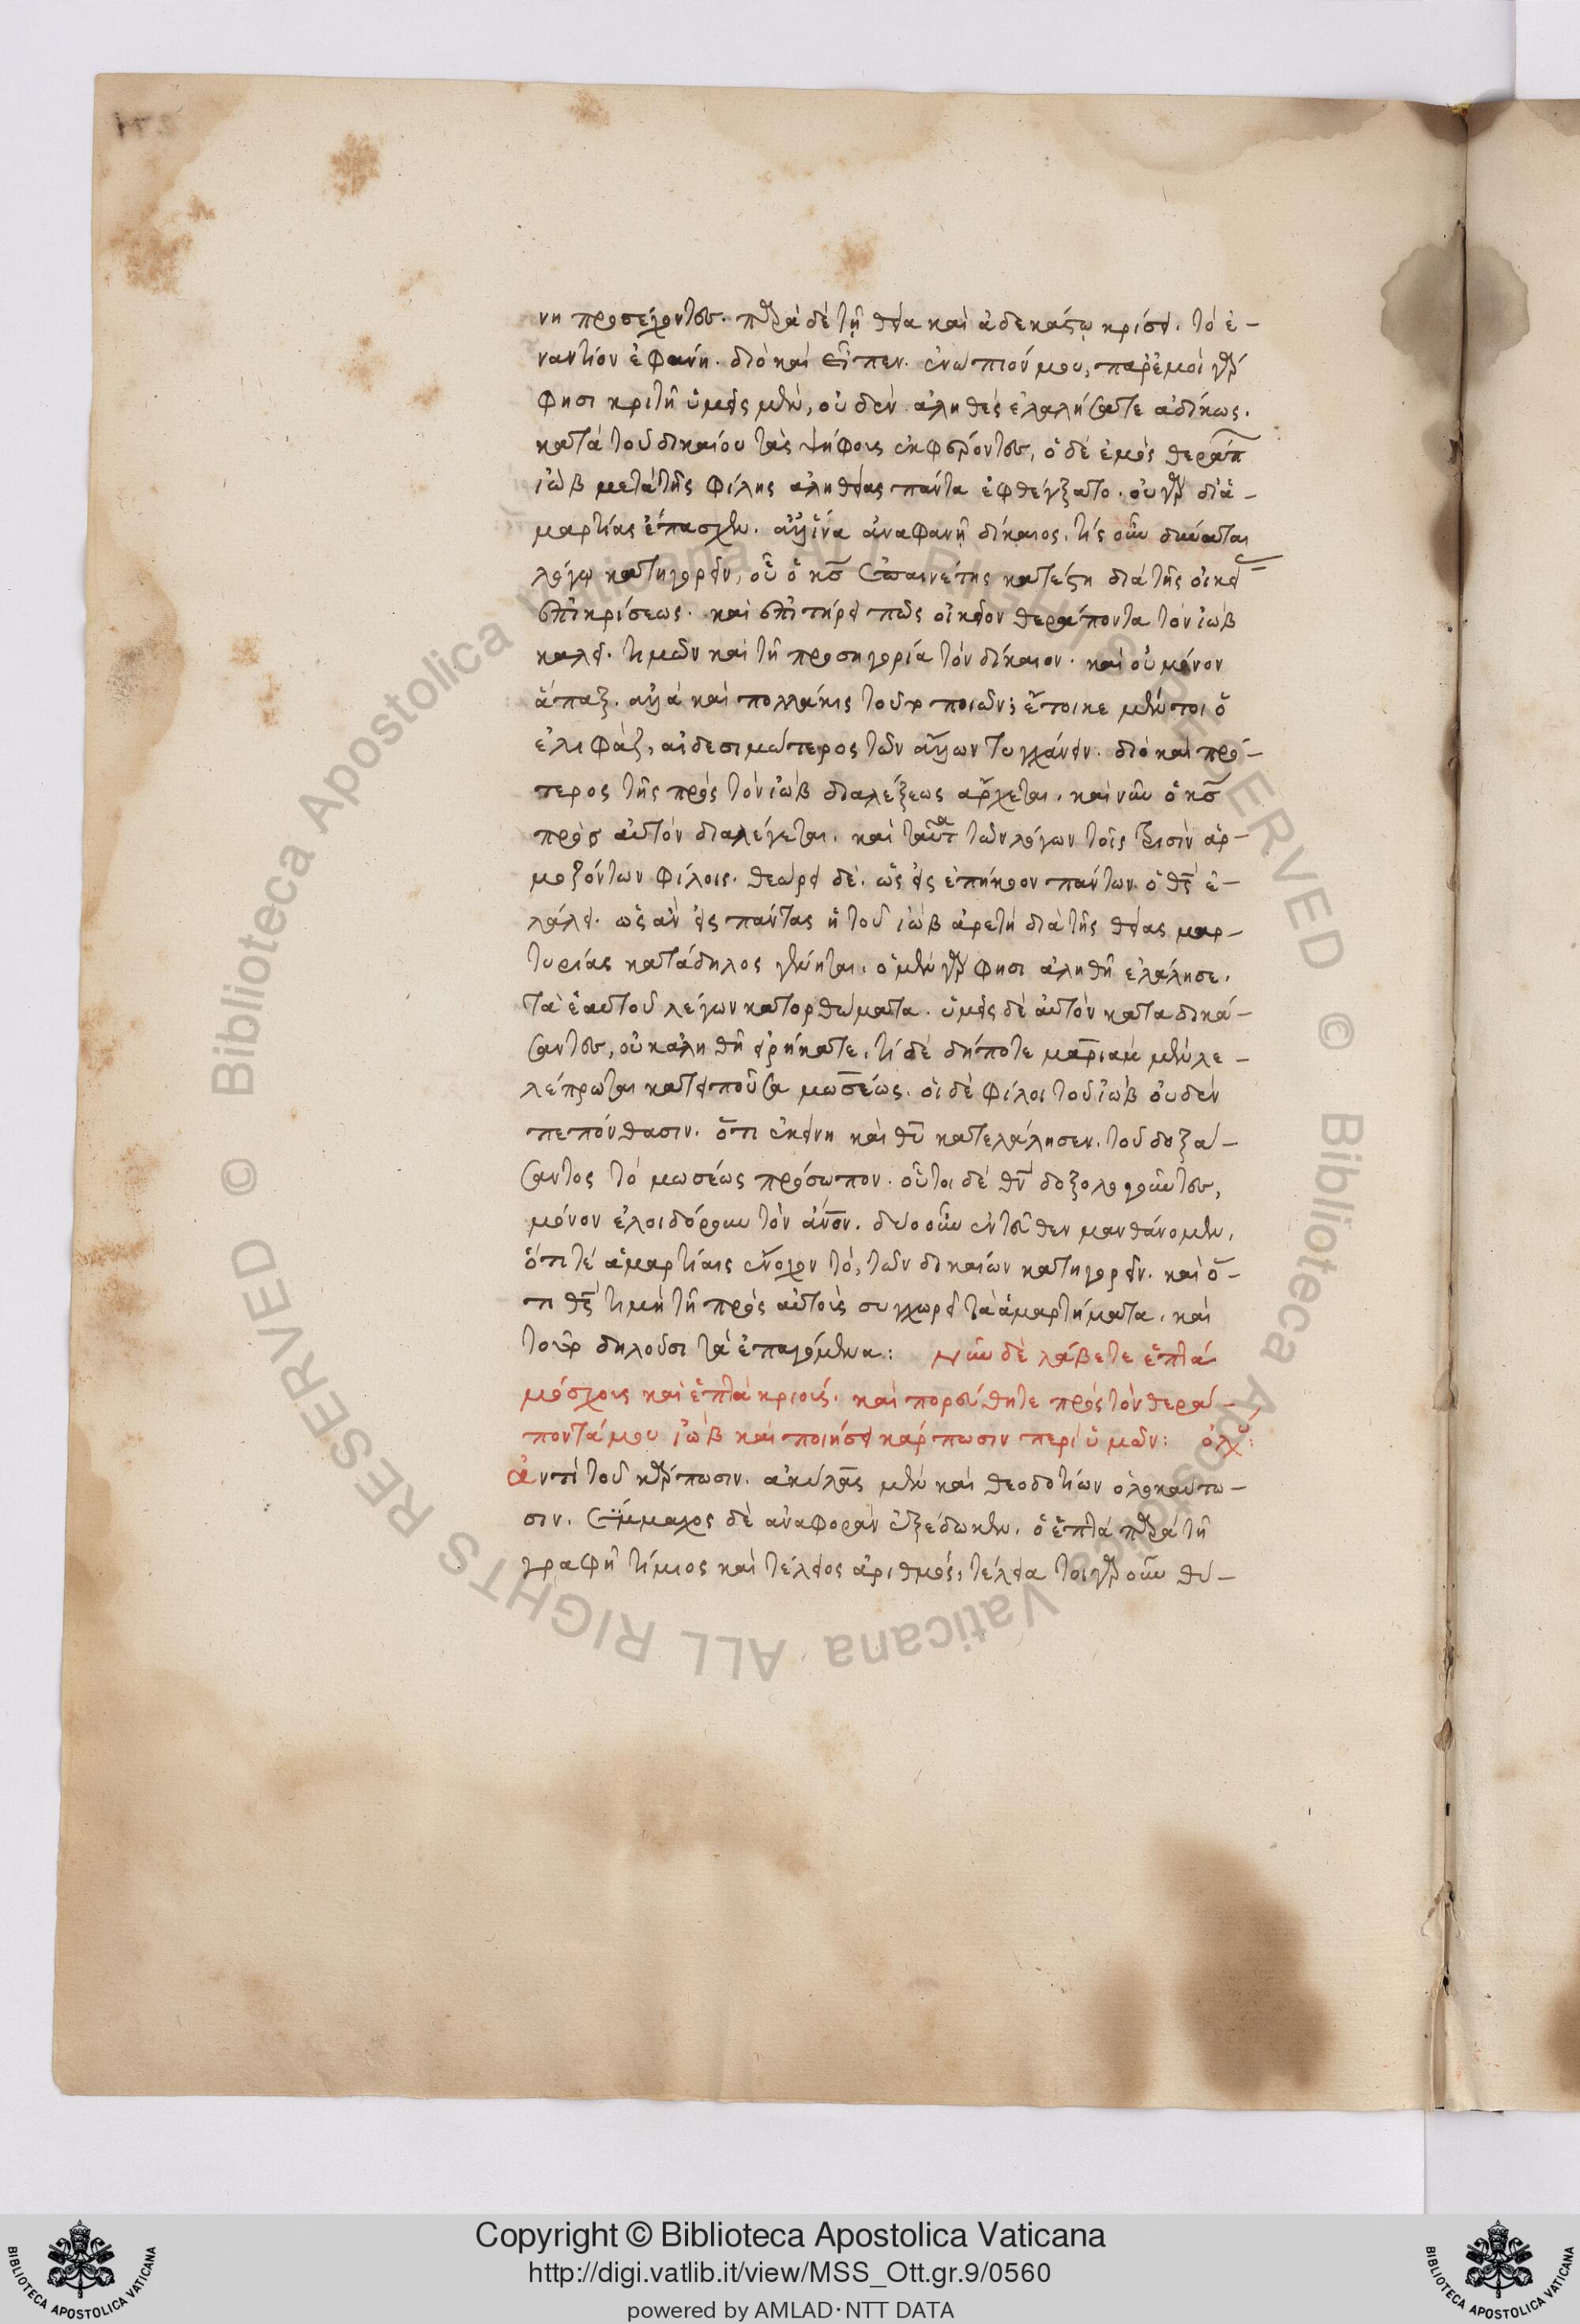 νη προσέχοντες. παρὰ δὲ τῇ θεία καὶ ἀδεκάστω κρίσει. τὸ ἐ-
ναντίον ἐφάνη. διὸ καὶ εἶπεν. ἐνώπιόν μου, παρ' ἐμοὶ γάρ
φησι κριτῆ ὑμεῖς μὲν, οὐδὲν ἀληθὲς ἐλαλήσατε ἀδίκως.
κατὰ τοῦ δικαίου τὰς ψήφους ἐκφέροντες, ὁ δὲ ἐμὸς θεράπ
ἰὼβ μετὰ τῆς φίλης ἀληθείας πάντα ἐφθέγξατο. οὐ γὰρ διἁ-
μαρτίας ἔπασχεν. ἀλλ' ἵνα ἀναφανῆ δίκαιος. τίς οὖν δύναται
λόγω κατηγορεῖν, οὗ ὁ κς ἐπαινέτης κατέστη διὰ τῆς οἰκεί
ἐπικρίσεως. καὶ ἐπιτήρει πῶς οἰκεῖον θεράποντα τὸν ἰὼβ
καλεῖ. τιμῶν καὶ τῆ προσηγορία τὸν δίκαιον. καὶ οὐ μόνον
ἅπαξ. ἀλλὰ καὶ πολλάκις τοῦτο ποιῶν; ἔοικε μέντοι ὁ
ἐλιφὰζ, αἰδεσιμώτερος τῶν ἄλλων τυγχάνειν. διὸ καὶ πρό-
τερος τῆς πρὸς τὸν ἰὼβ διαλέξεως ἄρχεται. καὶ νῦν ὁ κς
πρὸς αὐτὸν διαλέγεται. καὶ ταῦτα τῶν λόγων τοῖς τρισὶν ἁρ-
μοζόντων φίλοις. θεώρει δὲ. ὡς εἰς ἐπήκοον πάντων ὁ θς ἐ-
λάλει. ὡς ἂν εἰς πάντας ἡ τοῦ ἰὼβ ἀρετὴ διὰ τῆς θείας μαρ-
τυρίας κατάδηλος γένηται. ὁ μὲν γάρ φησι ἀληθῆ ἐλάλησε.
τὰ ἑαυτοῦ λέγων κατορθώματα. ὑμεῖς δὲ αὐτὸν καταδικά-
σαντες, οὐκ ἀληθῆ εἰρήκατε. τί δὲ δήποτε μαριὰμ μὲν λε-
λέπρωται κατειποῦσα μωσέως. οἱ δὲ φίλοι τοῦ ἰὼβ οὐδὲν
πεπόνθασιν. ὅτι ἐκείνη καὶ θυ κατελάλησεν. τοῦ δοξά-
σαντος τὸ μωσέως πρόσωπον. οὗτοι δὲ θν δοξολογοῦντες,
μόνον ἐλοιδόρουν τὸν ἀνον. δύο οὖν ἐντεῦθεν μανθάνομεν.
ὅτι τὲ ἁμαρτίαις ἔνοχον τὸ, τῶν δικαίων κατηγορεῖν. καὶ ὅ-
τι θς τιμῆ τῆ πρὸς αὐτοὺς συγχωρεῖ τὰ ἁμαρτήματα. καὶ
τοῦτο δηλοῦσι τὰ ἐπαγόμενα: Νῦν δὲ λάβετε ἑπτὰ
μόσχους καὶ ἑπτὰ κριούς. καὶ πορεύθητε πρὸς τὸν θερά-
ποντά μου ἰὼβ καὶ ποιήσει κάρπωσιν περὶ ὑμῶν: ὀλυ:
ἀντὶ τοῦ κάρπωσιν. ἀκύλας μὲν καὶ θεοδοτίων ὁλοκαύτω-
σιν. Σύμμαχος δὲ ἀναφορὰν ἐξέδωκεν. ὁ ἑπτὰ παρὰ τῆ
γραφῆ τίμιος καὶ τέλειος ἀριθμός, τέλεια τοιγαροῦν θύ-
Copyright © Biblioteca Apostolica Vaticana
http://digi.vatlib.it/view/MSS_Ott.gr.9/0560
powered by AMLAD·NTT DATA
BIBLIOTECA APOSTOLICA VATICANA
BIBLIOTECA APOSTOLICA VATICANA
© Biblioteca Apostolica Vaticana ALL RIGHTS RESERVED
© Biblioteca Apostolica Vaticana ALL RIGHTS RESERVED